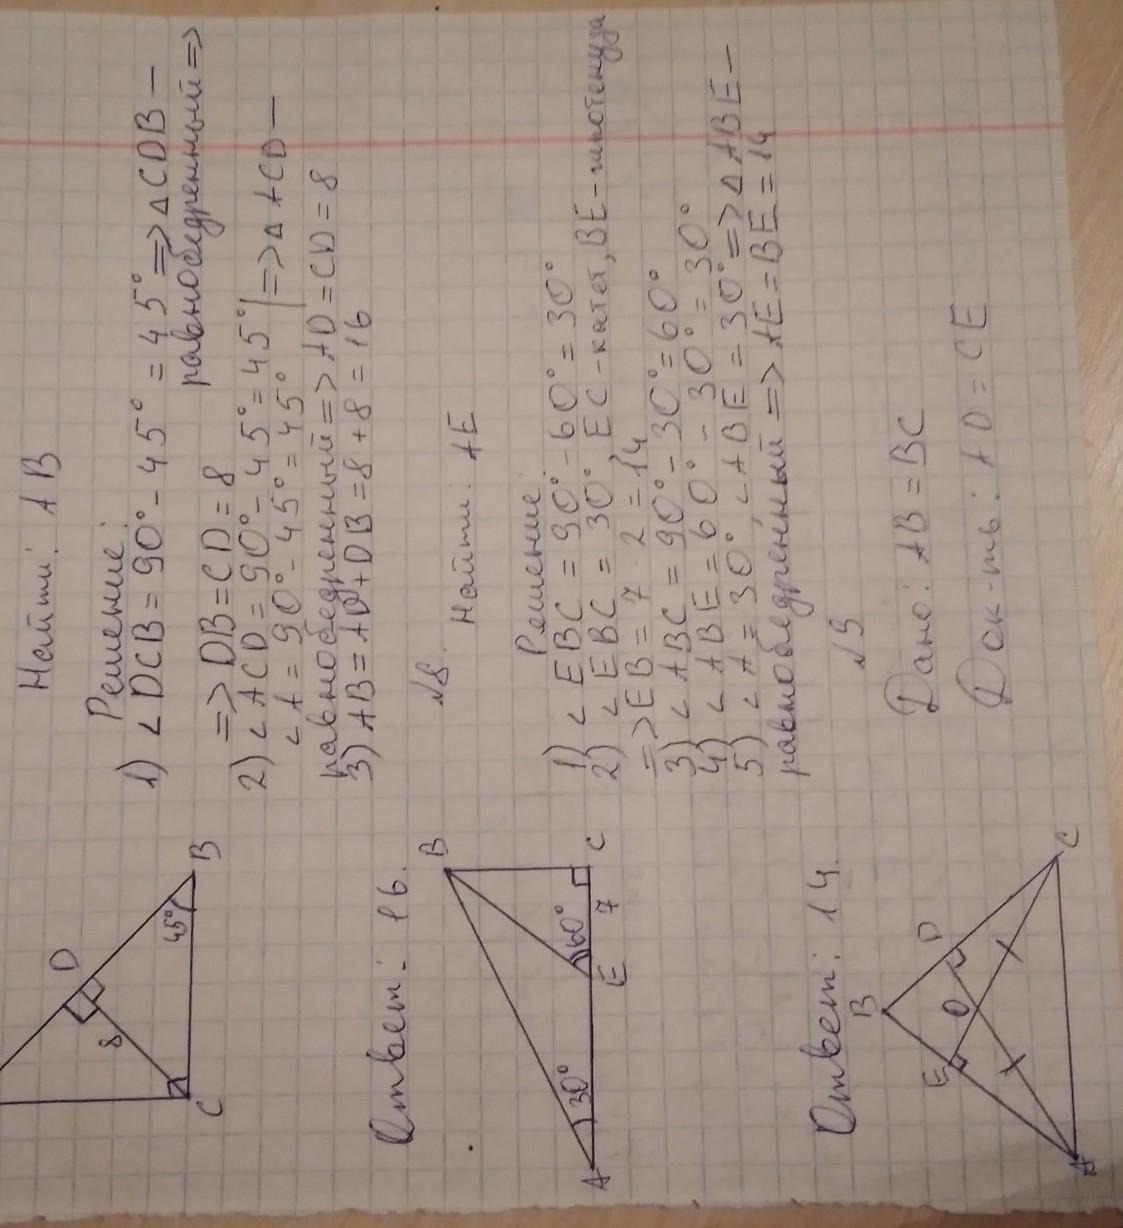 Найти: AB
Решение:
1) ∠DCB = 90° - 45° = 45° => △CDB —
равнобедренный =>
=> DB = CD = 8
2) ∠ACD = 90° - 45° = 45° | => △ACD —
∠A = 90° - 45° = 45°
равнобедренный => AD = CD = 8
3) AB = AD + DB = 8 + 8 = 16
D
8
45°
B
C
Ответ: 16.
№8.
Найти: AE
Решение:
1) ∠EBC = 90° - 60° = 30°
2) ∠EBC = 30°, EC - катет, BE - гипотенуза
=> EB = 7 · 2 = 14
3) ∠ABC = 90° - 30° = 60°
4) ∠ABE = 60° - 30° = 30°
5) ∠A = 30° ∠ABE = 30° => △ABE —
равнобедренный => AE = BE = 14
B
A
30°
60°
E
7
C
Ответ: 14.
№9
Дано: AB = BC
Док-ть: AD = CE
B
E
D
O
A
C